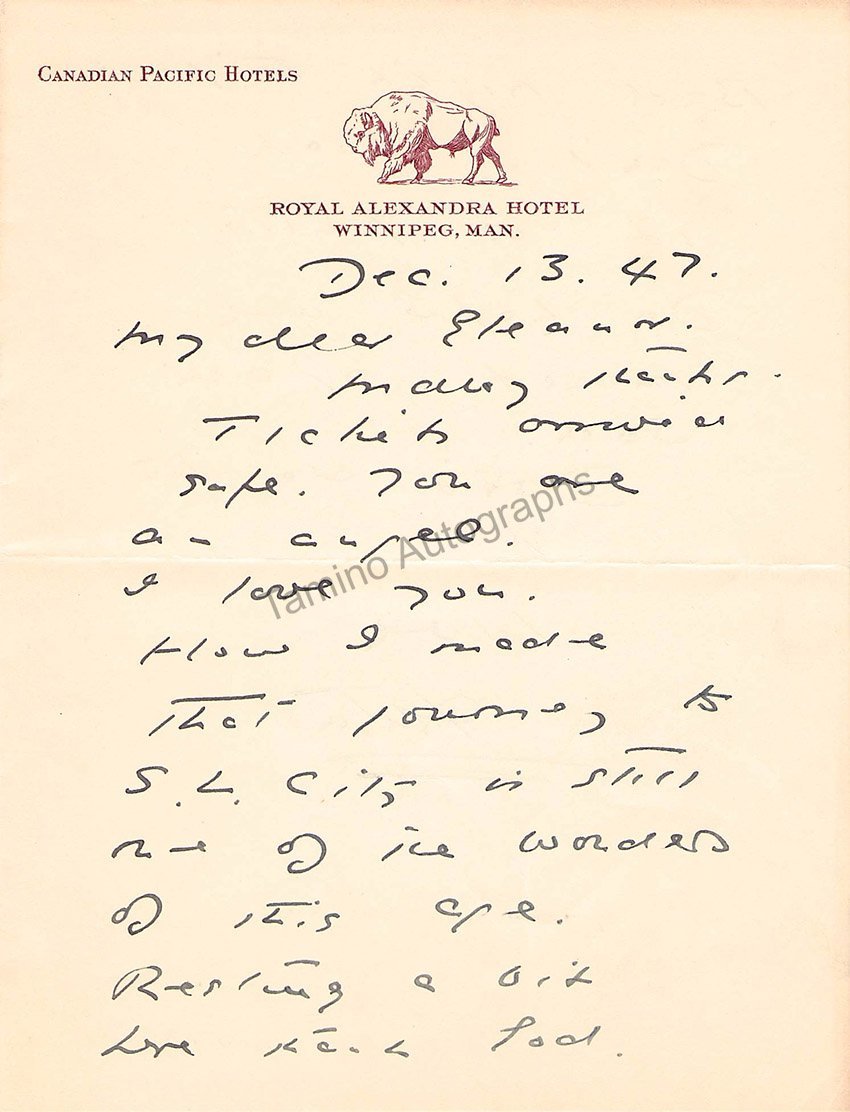 CANADIAN PACIFIC HOTELS
ROYAL ALEXANDRA HOTEL
WINNIPEG, MAN.
Dec. 13. 47.
My dear Eleanor.
Many thanks.
Tickets arrived
safe. You are
an angel.
I love you.
How I made
that journey to
S. L. City is still
one of the wonders
of this age.
Resting a bit
here thank God.
Tamino Autographs